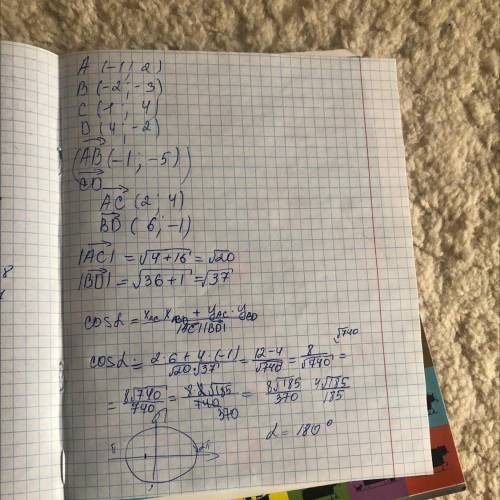 A (-1; 2)
B (-2; -3)
C (1; 4)
D (4; -2)
(AB (-1; -5))
CD
AC (2; 4)
BD (6; -1)
|AC| = √4+16 = √20
|BD| = √36+1 = √37
cosα = x_AC x_BD + y_AC · y_BD / |AC| |BD|
√740
cosα = 2·6 + 4·(-1) / √20·√37 = 12-4 / √740 = 8 / √740 =
= 8√740 / 740 = 8·2√185 / 740 370 = 8√185 / 370 4√185 / 185
π 2π
α = 180°